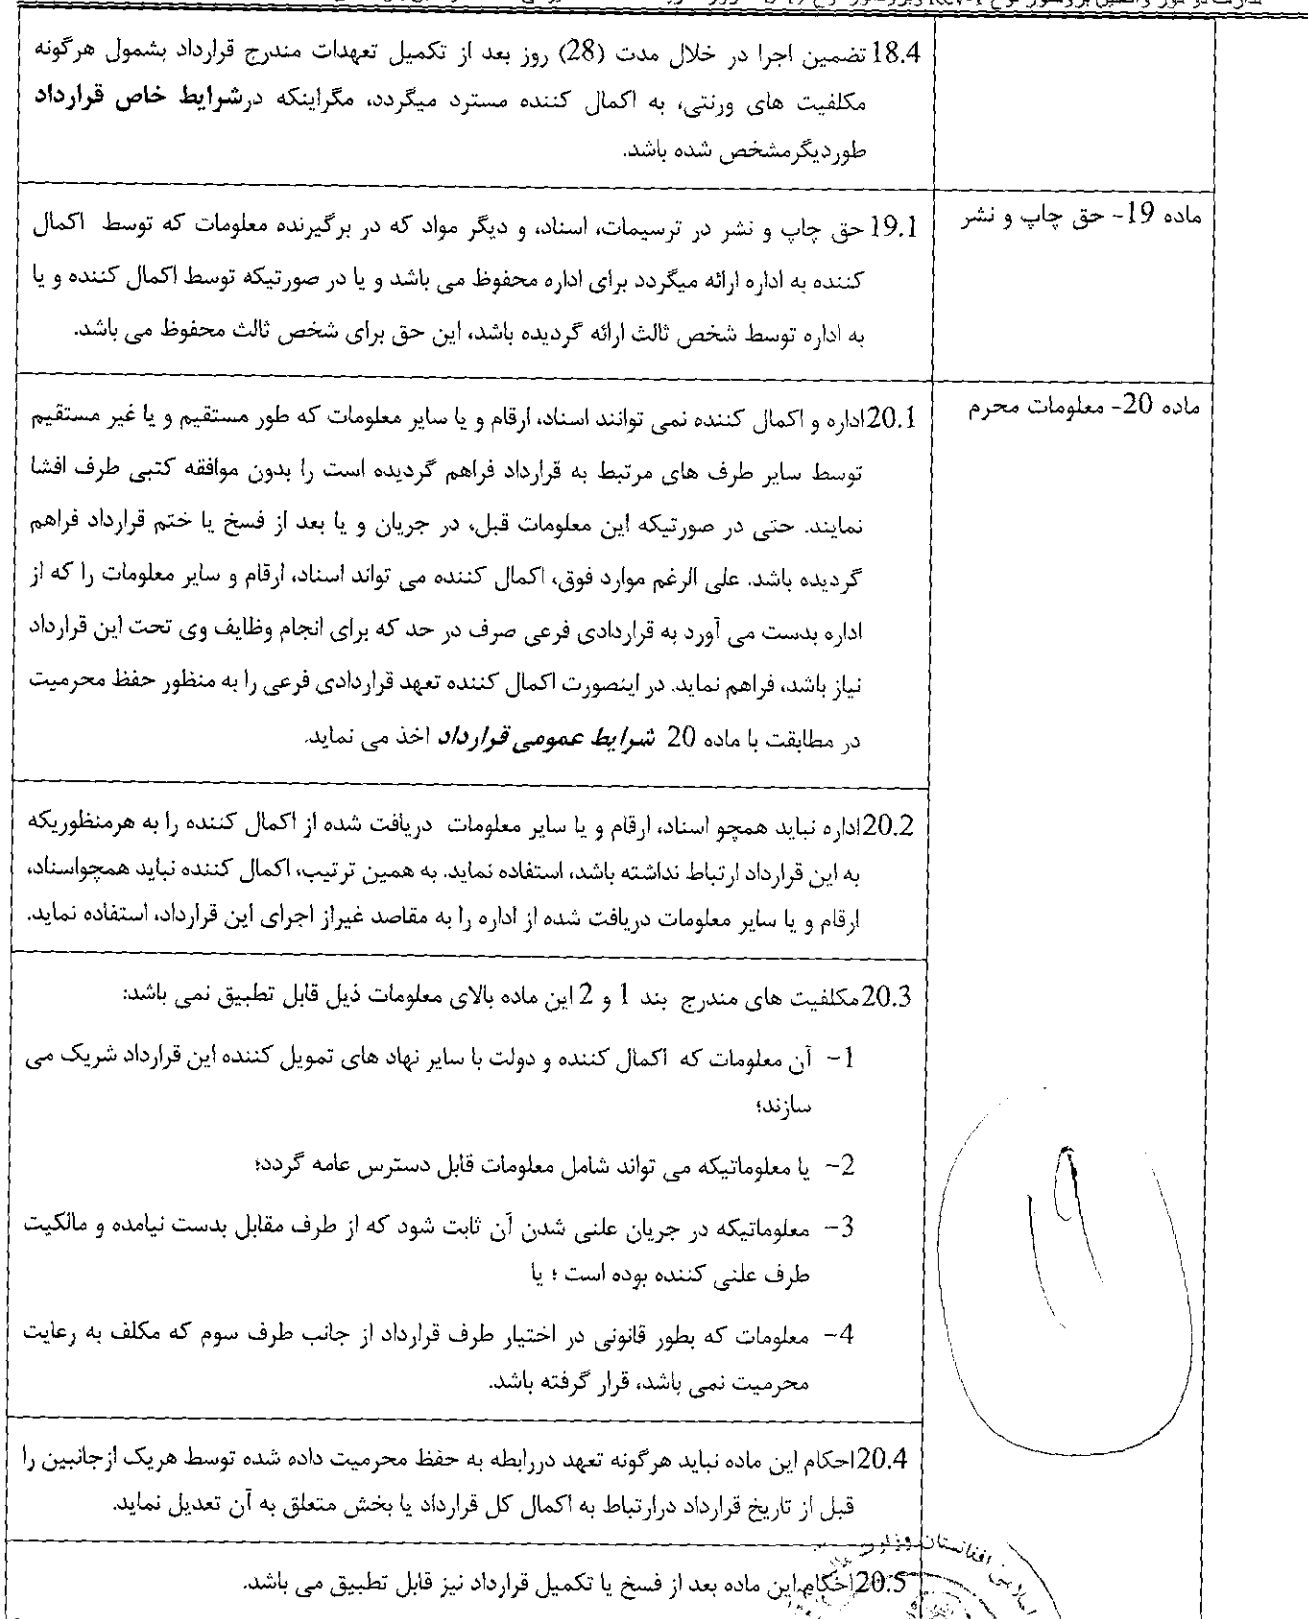 18.4 تضمین اجرا در خلال مدت (28) روز بعد از تکمیل تعهدات مندرج قرارداد بشمول هرگونه
مکلفیت های ورنتی، به اکمال کننده مسترد میگردد، مگراینکه درشرایط خاص قرارداد
طوردیگرمشخص شده باشد.
ماده 19- حق چاپ و نشر
19.1 حق چاپ و نشر در ترسیمات، اسناد، و دیگر مواد که در برگیرنده معلومات که توسط اکمال
کننده به اداره ارائه میگردد برای اداره محفوظ می باشد و یا در صورتیکه توسط اکمال کننده و یا
به اداره توسط شخص ثالث ارائه گردیده باشد، این حق برای شخص ثالث محفوظ می باشد.
ماده 20- معلومات محرم
20.1اداره و اکمال کننده نمی توانند اسناد، ارقام و یا سایر معلومات که طور مستقیم و یا غیر مستقیم
توسط سایر طرف های مرتبط به قرارداد فراهم گردیده است را بدون موافقه کتبی طرف افشا
نمایند. حتی در صورتیکه این معلومات قبل، در جریان و یا بعد از فسخ یا ختم قرارداد فراهم
گردیده باشد. علی الرغم موارد فوق، اکمال کننده می تواند اسناد، ارقام و سایر معلومات را که از
اداره بدست می آورد به قراردادی فرعی صرف در حد که برای انجام وظایف وی تحت این قرارداد
نیاز باشد، فراهم نماید. در اینصورت اکمال کننده تعهد قراردادی فرعی را به منظور حفظ محرمیت
در مطابقت با ماده 20 شرایط عمومی قرارداد اخذ می نماید.
20.2اداره نباید همچو اسناد، ارقام و یا سایر معلومات دریافت شده از اکمال کننده را به هرمنظوریکه
به این قرارداد ارتباط نداشته باشد، استفاده نماید. به همین ترتیب، اکمال کننده نباید همچواسناد،
ارقام و یا سایر معلومات دریافت شده از اداره را به مقاصد غیراز اجرای این قرارداد، استفاده نماید.
20.3مکلفیت های مندرج بند 1 و 2 این ماده بالای معلومات ذیل قابل تطبیق نمی باشد:
1- آن معلومات که اکمال کننده و دولت با سایر نهاد های تمویل کننده این قرارداد شریک می
سازند؛
2- یا معلوماتیکه می تواند شامل معلومات قابل دسترس عامه گردد؛
3- معلوماتیکه در جریان علنی شدن آن ثابت شود که از طرف مقابل بدست نیامده و مالکیت
طرف علنی کننده بوده است ؛ یا
4- معلومات که بطور قانونی در اختیار طرف قرارداد از جانب طرف سوم که مکلف به رعایت
محرمیت نمی باشد، قرار گرفته باشد.
20.4احکام این ماده نباید هرگونه تعهد دررابطه به حفظ محرمیت داده شده توسط هریک ازجانبین را
قبل از تاریخ قرارداد درارتباط به اکمال کل قرارداد یا بخش متعلق به آن تعدیل نماید.
20.5احکام این ماده بعد از فسخ یا تکمیل قرارداد نیز قابل تطبیق می باشد.
افغانستان